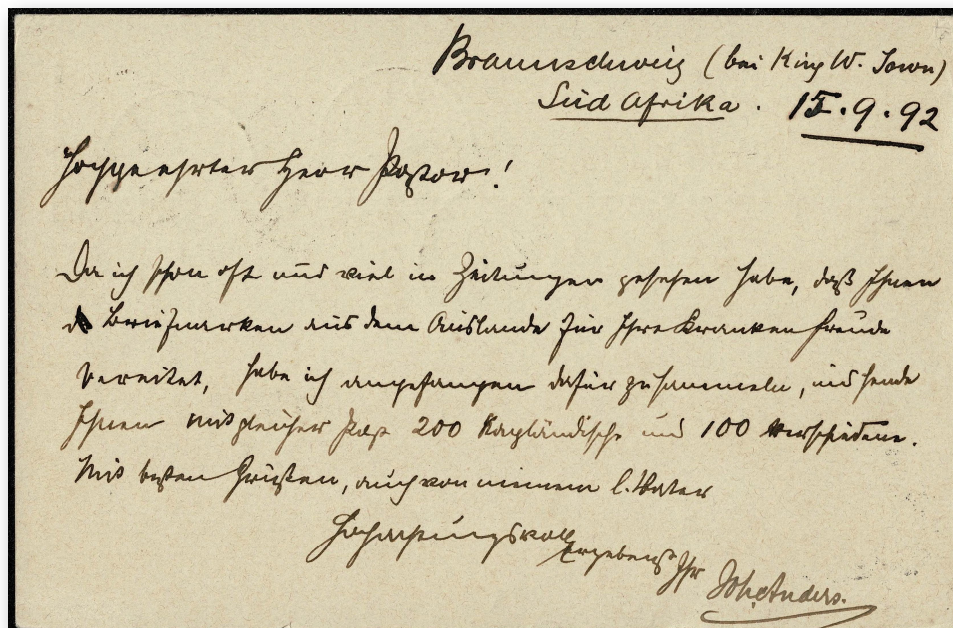 Braunschweig (bei King W. Town)
Süd Afrika. 15.9.92
Hochgeehrter Herr Pastor!
Da ich schon oft und viel in Zeitungen gesehen habe, daß Ihnen
Briefmarken aus dem Auslande für Ihre Kranken Freude
bereitet, habe ich angefangen dafür zu sammeln, und sende
Ihnen mit gleicher Post 200 Kapländische und 100 verschiedene.
Mit besten Grüßen, auch von meinem l. Vater
Hochachtungsvoll
Ergebenst Ihr Joh. Anders.